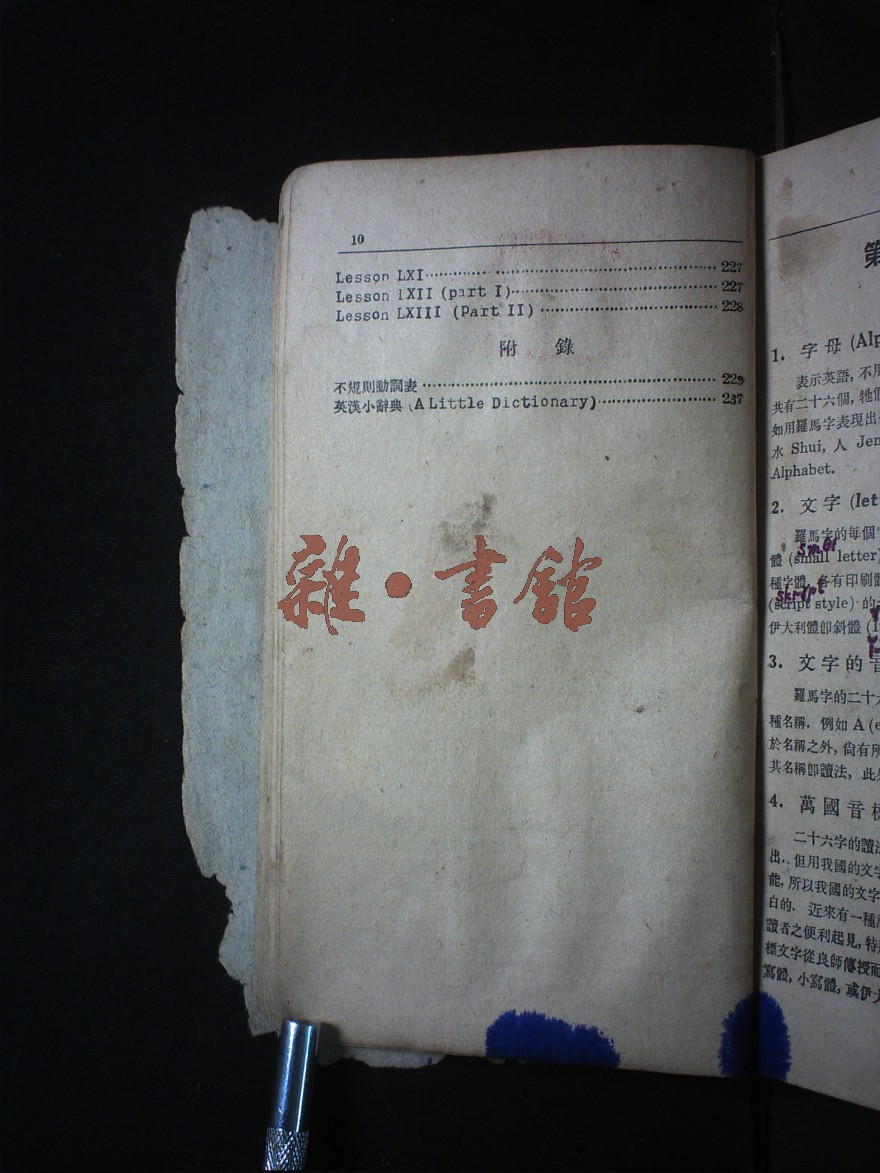 10
Lesson LXI 227
Lesson LXII (part I) 227
Lesson LXIII (Part II) 228
附 錄
不規則動詞表 229
英漢小辭典 (A Little Dictionary) 237
雜·書館
第
1. 字母 (Alp
表示英語, 不用
共有二十六個, 牠們
如用羅馬字表現出
水 Shui, 人 Jen
Alphabet.
2. 文字 (let
羅馬字的每個字
small
體 (small letter)
種字體, 各有印刷體
skript
(script style) 的
伊大利體卽斜體 (I
3. 文字的音
羅馬字的二十六
種名稱. 例如 A (e
於名稱之外, 尙有所
其名稱卽讀法, 此
4. 萬國音標
二十六字的讀法
出. 但用我國的文字
能, 所以我國的文字
白的. 近來有一種萬
讀者之便利起見, 特
標文字從良師傳授而
寫體, 小寫體, 或伊大